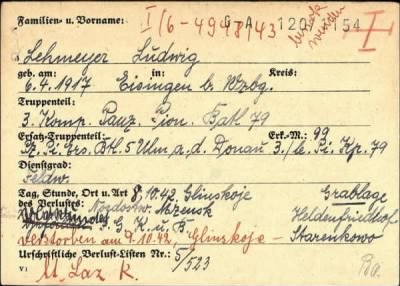 Familien- u. Vorname: I/6-4948/43 G-A 120 / 54
Lehmeyer Ludwig
geb. am: in: Kreis:
6.4.1917 Eisingen b. Wzbg.
Truppenteil:
3. Komp. Panz. Pion. Batl. 79
Ersatz-Truppenteil: Erk.-M.: 99
Pz. Pi. Ers. Btl. 5 Ulm a. d. Donau 3./ Pi. Kp. 79
Dienstgrad:
Feldw.
Tag, Stunde, Ort u. Art 8.10.42. Glinskoje Grablage
des Verlustes: Nordostw. Heldenfriedhof
verstorben am 9.10.42, Glinskoje - Starenkowo
Urschriftliche Verlust-Listen Nr.: 5/523
V: Laz R.